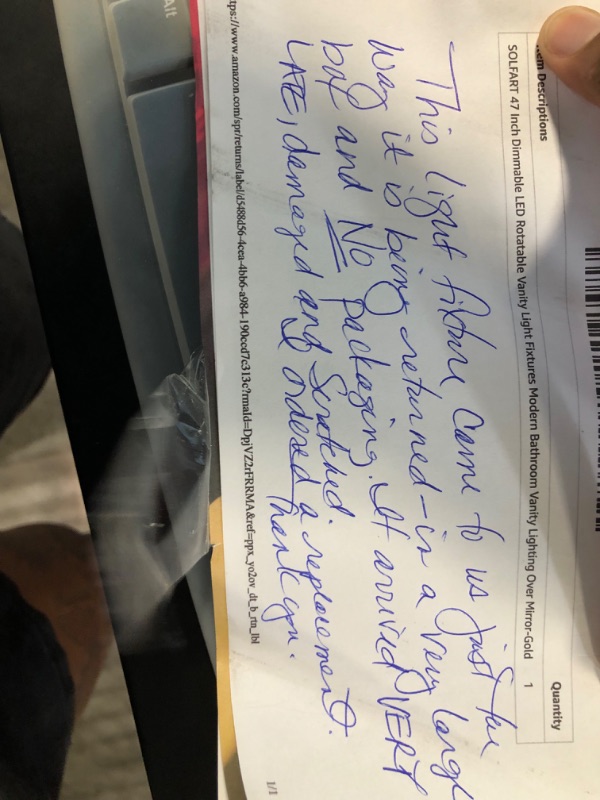 Item Descriptions Quantity
SOLFART 47 Inch Dimmable LED Rotatable Vanity Light Fixtures Modern Bathroom Vanity Lighting Over Mirror-Gold 1
This light fixture came to us just the
way it is being returned - in a very large
box and No packaging. It arrived VERY
LATE, damaged and scratched.
I ordered a replacement.
Thank you.
tps://www.amazon.com/spr/returns/label/d5488d56-4cea-4bb6-a984-190ccd7c313c?rmaId=DpjVZ2rFRRMA&ref=ppx_yo2ov_dt_b_rtn_lbl
1/1
Alt